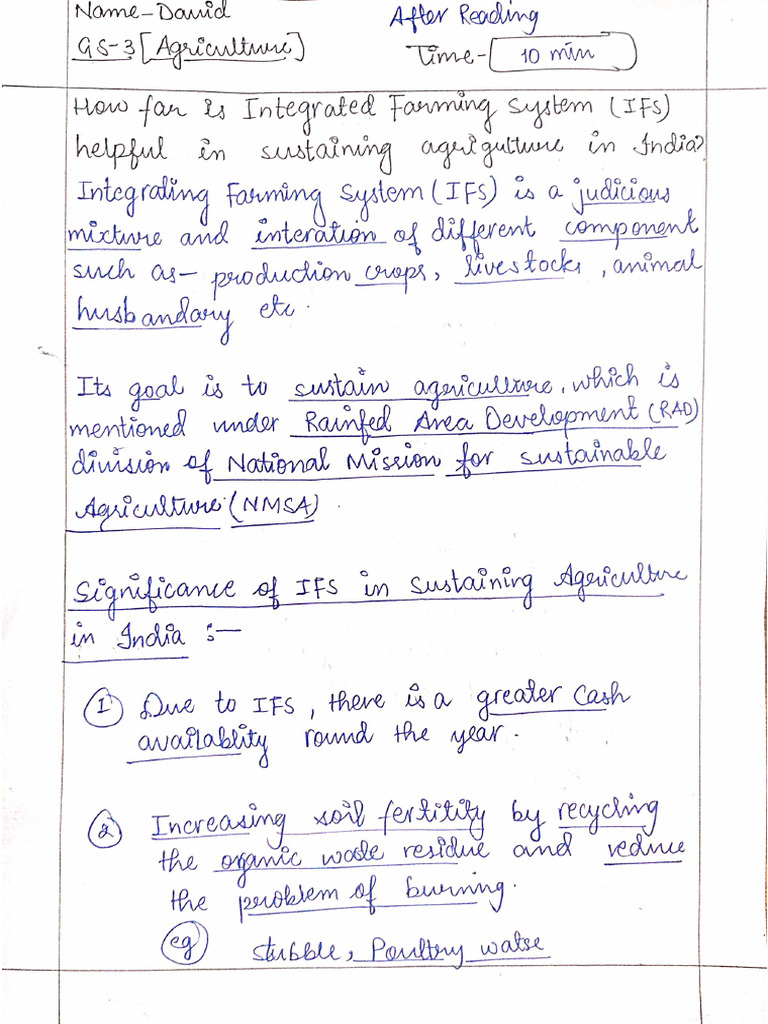 Name-David
After Reading
GS-3[Agriculture]
Time- 10 min
How far is Integrated Farming System (IFS)
helpful in sustaining agrigulture in India?
Integrating Farming System (IFS) is a judicious
mixture and interation of different component
such as- production crops, livestocks, animal
husbandary etc.
Its goal is to sustain agriculture, which is
mentioned under Rainfed Area Development (RAD)
division of National Mission for sustainable
Agriculture (NMSA).
Significance of IFS in sustaining Agriculture
in India :-
1 Due to IFS, there is a greater cash
availablity round the year.
2 Increasing soil fertitity by recycling
the organic waste residue and reduce
the problem of burning.
eg stubble, Poultry watse